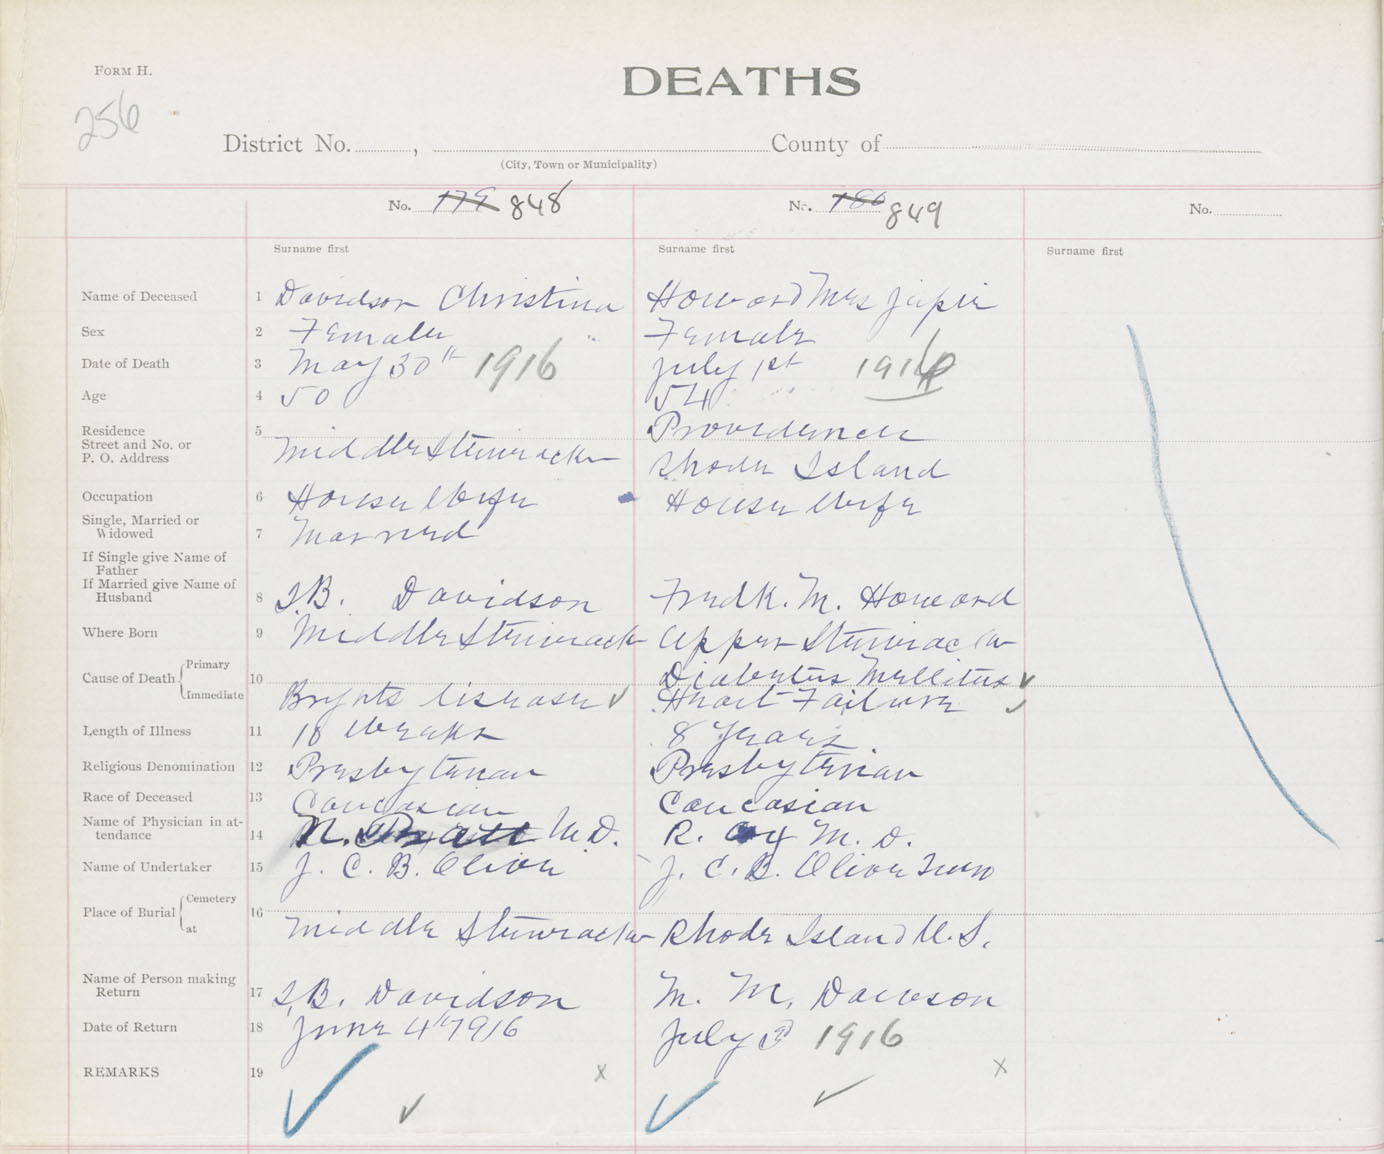 FORM H.
DEATHS
256
District No. , County of
(City, Town or Municipality)
No. 179 848 No. 180 849 No.
Surname first Surname first Surname first
Name of Deceased 1 Davidson Christina Howard Mrs
Sex 2 Female Female
Date of Death 3 May 30th 1916 July 1st 1916
Age 4 50 54
Residence 5 Providence
Street and No. or
P. O. Address Middle Stewiacke Rhode Island
Occupation 6 House Wife House Wife
Single, Married or
Widowed 7 Married
If Single give Name of
Father
If Married give Name of
Husband 8 Davidson Fredk. M. Howard
Where Born 9 Middle Stewiacke Upper Stewiacke
Cause of Death Primary 10 Diabetus Mellitus
Immediate Brights Disease Heart Failure
Length of Illness 11 18 Weeks 8 Years
Religious Denomination 12 Presbyterian Presbyterian
Race of Deceased 13 Caucasian Caucasian
Name of Physician in at-
tendance 14 M.D. R. Cox M. D.
Name of Undertaker 15 J. C. B. Olive J. C. B. Olive Truro
Place of Burial Cemetery 16
at Middle Stewiacke Rhode Island U.S.
Name of Person making
Return 17 Davidson M. M. Dawson
Date of Return 18 June 4th 1916 July 3 1916
REMARKS 19 x x